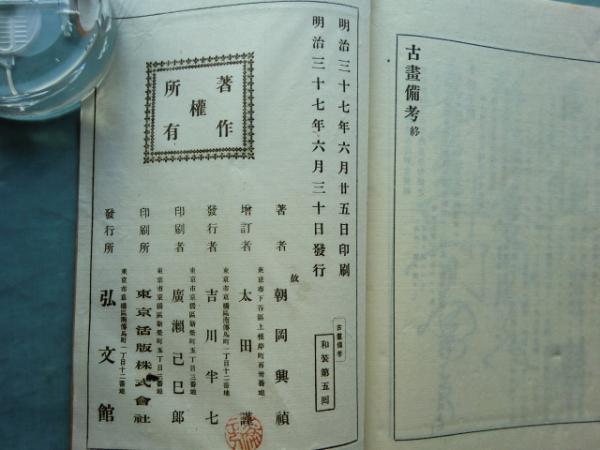 古畫備考終
明治三十七年六月廿五日印刷
明治三十七年六月三十日發行
著作
權
所有
古畫備考
和装第五囘
著者
故 朝岡興禎
東京市下谷區上根岸町百卅番地
增訂者
太田謹
東京市京橋區南傳馬町一丁目十二番地
發行者
吉川半七
東京市京橋區新榮町五丁目三番地
印刷者
廣瀨己巳郎
東京市京橋區新榮町五丁目三番地
印刷所
東京活版株式會社
東京市京橋區南傳馬町一丁目十二番地
發行所
弘文館